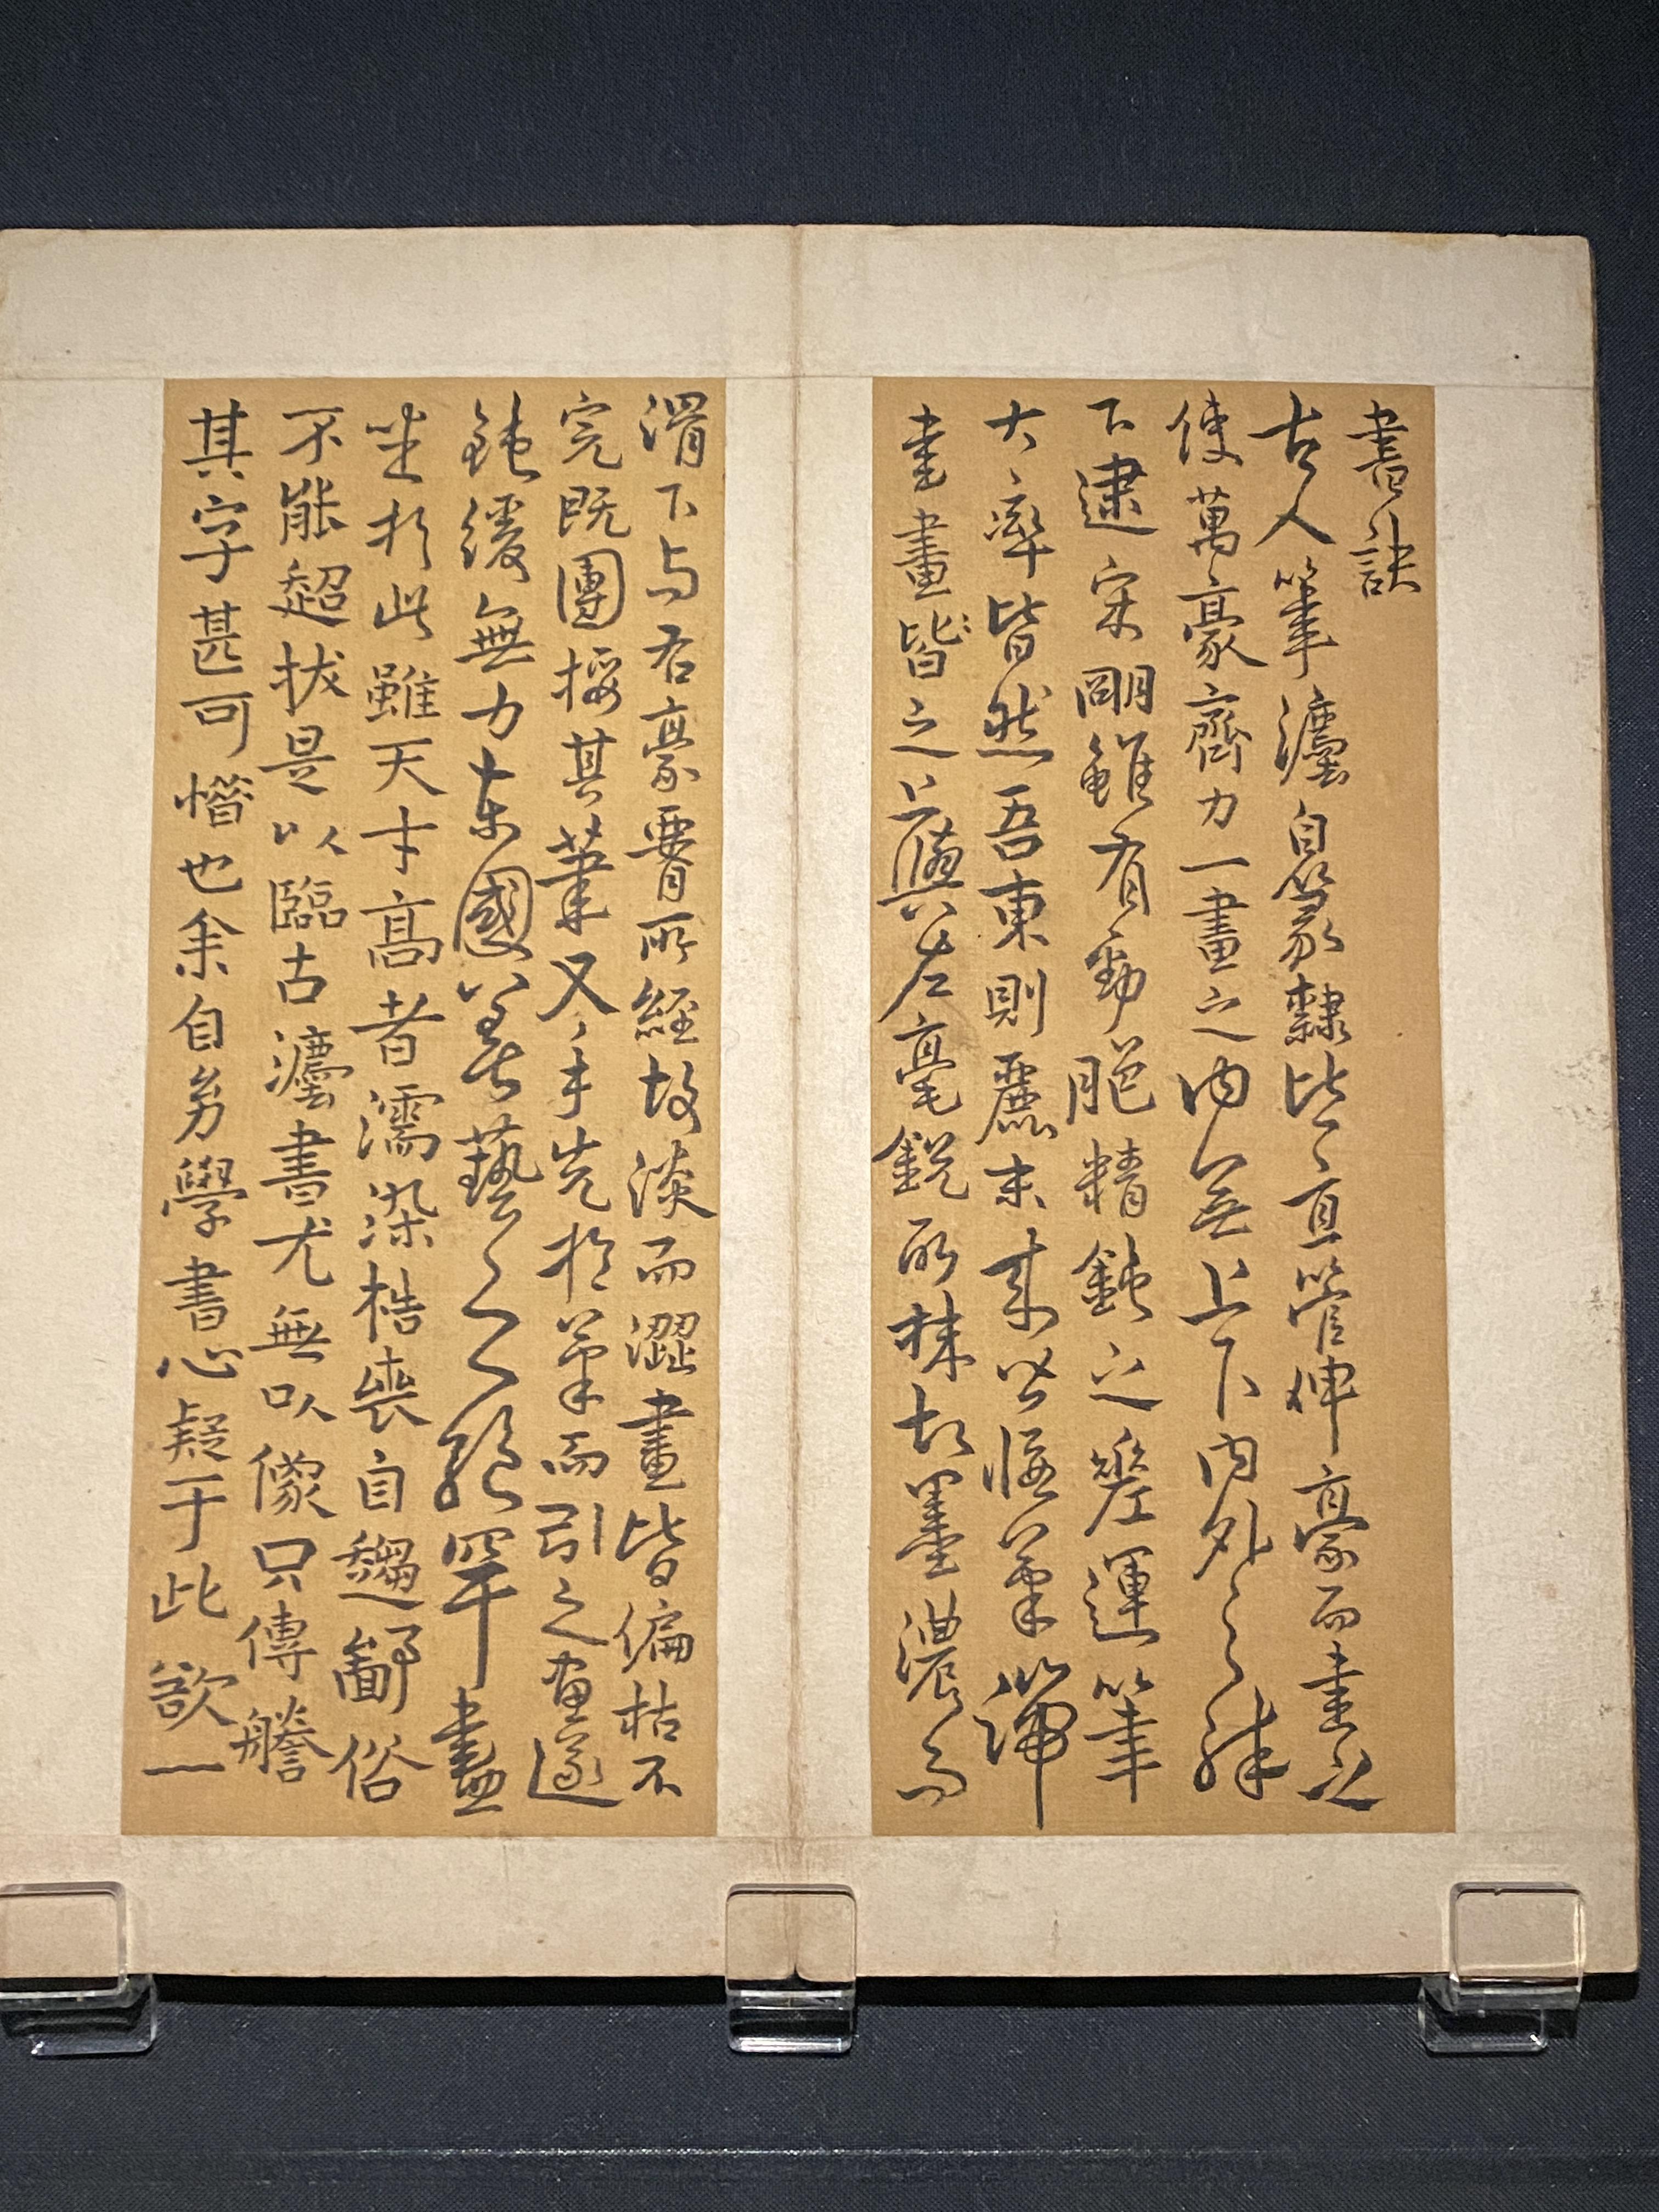 書訣
古人筆灋自篆隷皆直管伸豪而書之
使萬豪齊力一畫之内無上下内外之殊
下逮宋明雖有勁脃精鈍之差運筆
大率皆然吾東則麗末來皆偃筆端
書畫皆之上與左毫銳所抹故墨濃而
滑下与右豪要所經故淡而澀畫皆偏枯不
完既團捼其筆又手先於筆而引之畫遂
鈍緩無力東國藝之罕盡
坐於此雖天才高者濡染梏喪自趨鄙俗
不能超拔是以臨古灋書尤無以像只傳謄
其字甚可惜也余自㓜學書心疑于此欲一